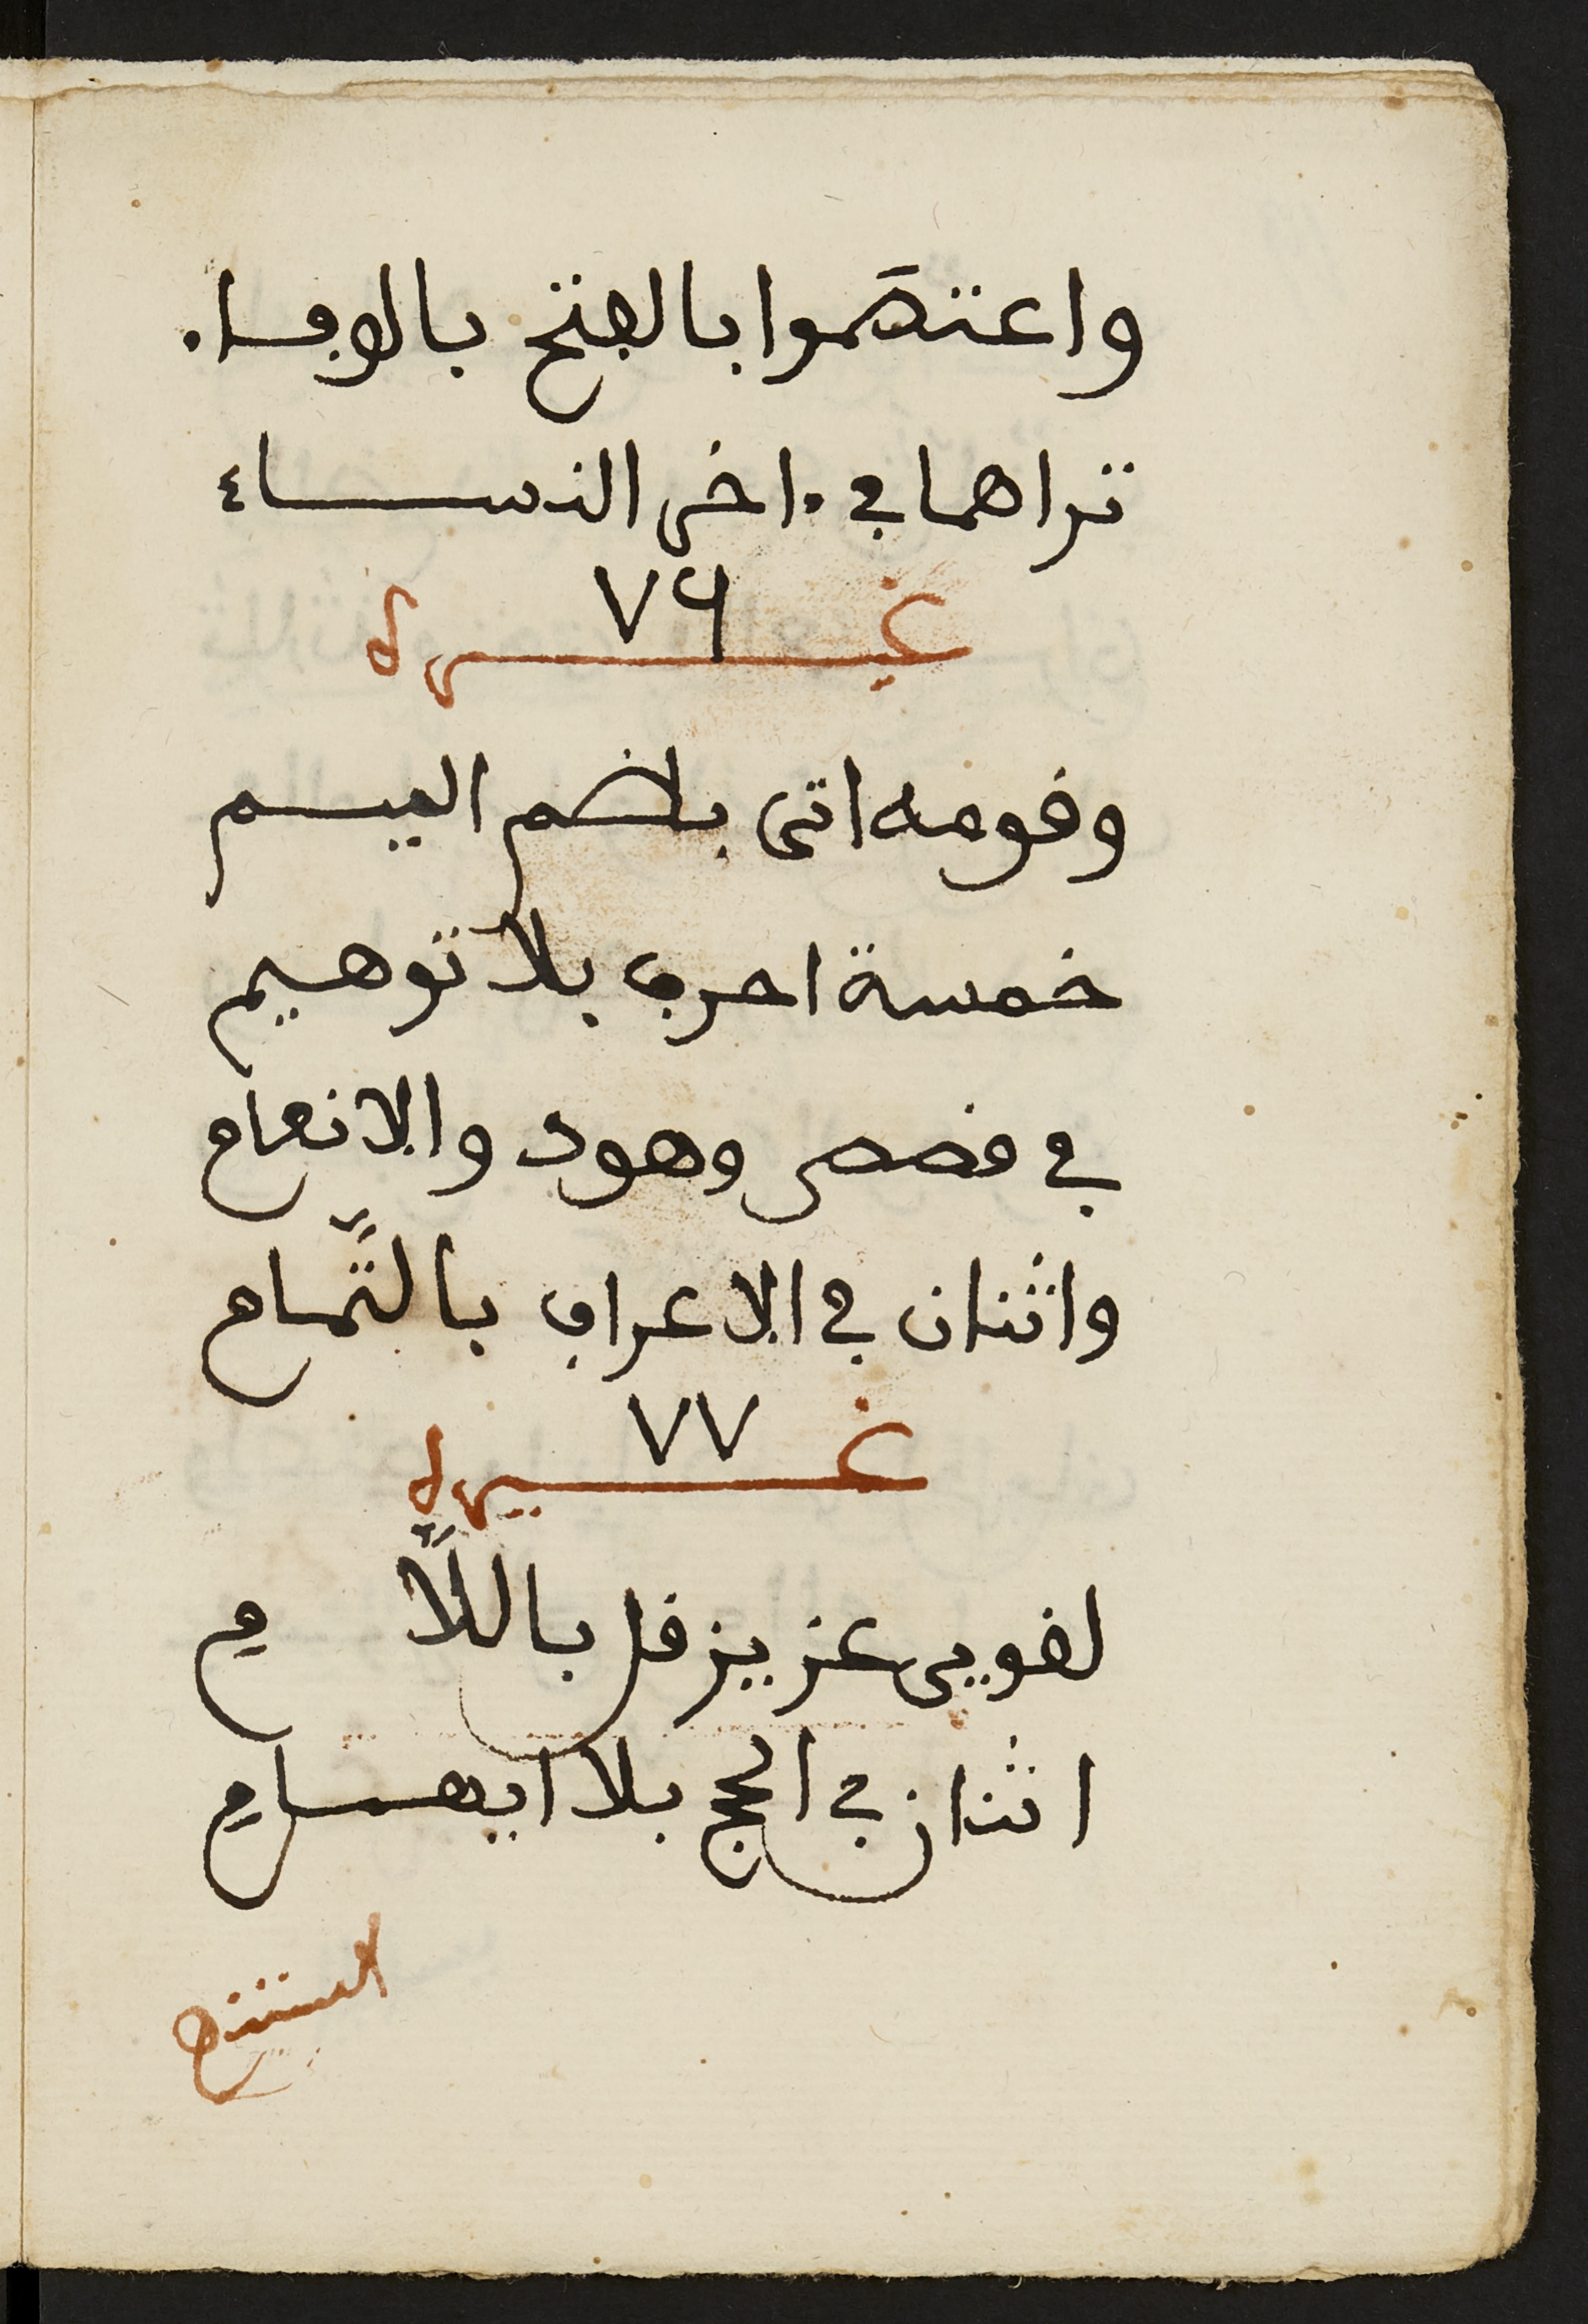 واعتصموا بالفتح بالوفاء
تراهما في ءاخر النساء
٧٦
غيره
وقومه اتى بضم الميم
خمسة احرف بلا توهيم
في قصص وهود والانعام
واثنان في الاعراف بالتَّمام
٧٧
غيره
لقويى عزيز قل باللَّامِ
اثنان في الحج بلا ايهامِ